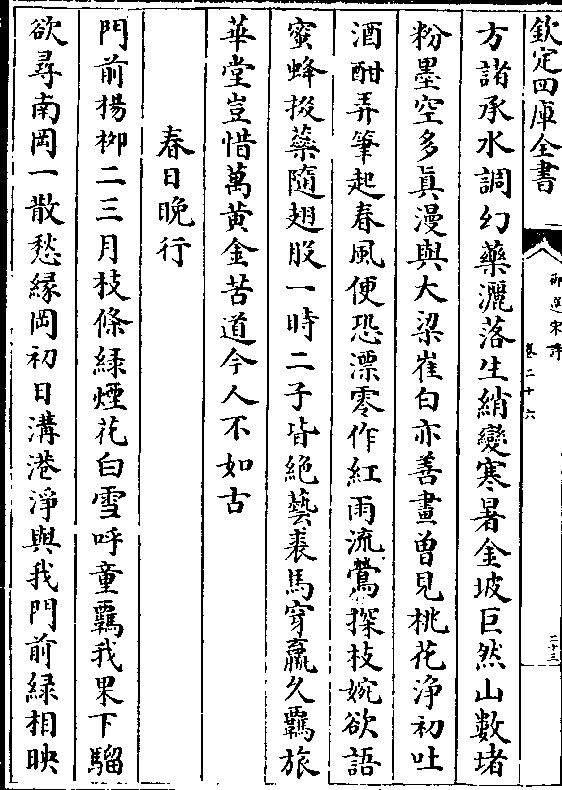 欽定四庫全書
御選宋詩
卷二十六
二十三
方諸承水調幻藥灑落生綃變寒暑金坡巨然山數堵
粉墨空多真漫與大梁崔白亦善畫曾見桃花淨初吐
酒酣弄筆起春風便恐漂零作紅雨流鶯探枝婉欲語
蜜蜂掇蘂隨翅股一時二子皆絕藝裘馬穿羸久羈旅
華堂豈惜萬黃金苦道今人不如古
春日晚行
門前楊柳二三月枝條綠煙花白雪呼童羈我果下騮
欲尋南岡一散愁緣岡初日溝港淨與我門前綠相映